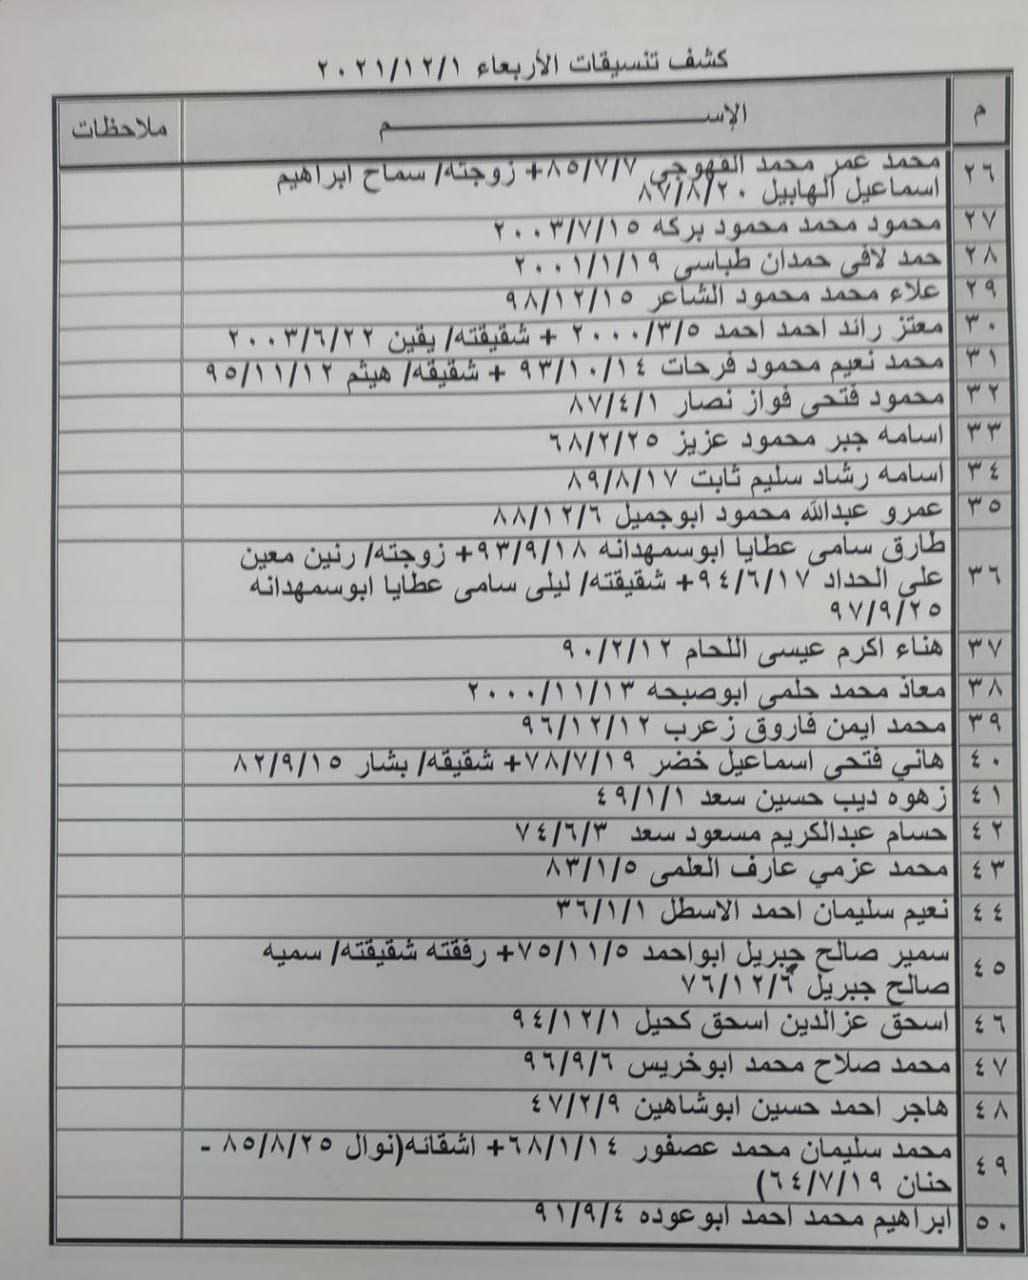 كشف تنسيقات الأربعاء ٢٠٢١/١٢/١
م الإســـــــــــــم ملاحظات
٢٦ محمد عمر محمد القهوجي ٨٥/٧/٧+ زوجته/ سماح ابراهيم
اسماعيل الهابيل ٨٧/٨/٢٠
٢٧ محمود محمد محمود بركه ٢٠٠٣/٧/١٥
٢٨ حمد لافى حمدان طباسى ٢٠٠١/١/١٩
٢٩ علاء محمد محمود الشاعر ٩٨/١٢/١٥
٣٠ معتز رائد احمد احمد ٢٠٠٠/٣/٥ + شقيقته/ يقين ٢٠٠٣/٦/٢٢
٣١ محمد نعيم محمود فرحات ٩٣/١٠/١٤ + شقيقه/ هيثم ٩٥/١١/١٢
٣٢ محمود فتحى فواز نصار ٨٧/٤/١
٣٣ اسامه جبر محمود عزيز ٦٨/٢/٢٥
٣٤ اسامه رشاد سليم ثابت ٨٩/٨/١٧
٣٥ عمرو عبدالله محمود ابوجميل ٨٨/١٢/٦
٣٦ طارق سامى عطايا ابوسمهدانه ٩٣/٩/١٨+ زوجته/ رنين معين
على الحداد ٩٤/٦/١٧+ شقيقته/ ليلى سامى عطايا ابوسمهدانه
٩٧/٩/٢٥
٣٧ هناء اكرم عيسى اللحام ٩٠/٢/١٢
٣٨ معاذ محمد حلمى ابوصبحه ٢٠٠٠/١١/١٣
٣٩ محمد ايمن فاروق زعرب ٩٦/١٢/١٢
٤٠ هاني فتحى اسماعيل خضر ٧٨/٧/١٩+ شقيقه/ بشار ٨٢/٩/١٥
٤١ زهوه ديب حسين سعد ٤٩/١/١
٤٢ حسام عبدالكريم مسعود سعد ٧٤/٦/٣
٤٣ محمد عزمي عارف العلمى ٨٣/١/٥
٤٤ نعيم سليمان احمد الاسطل ٣٦/١/١
٤٥ سمير صالح جبريل ابواحمد ٧٥/١١/٥+ رفقته شقيقته/ سميه
صالح جبريل ٧٦/١٢/٦
٤٦ اسحق عزالدين اسحق كحيل ٩٤/١٢/١
٤٧ محمد صلاح محمد ابوخريس ٩٦/٩/٦
٤٨ هاجر احمد حسين ابوشاهين ٤٧/٢/٩
٤٩ محمد سليمان محمد عصفور ٦٨/١/١٤+ اشقائه(نوال ٨٥/٨/٢٥ -
حنان ٦٤/٧/١٩)
٥٠ ابراهيم محمد احمد ابوعوده ٩١/٩/٤